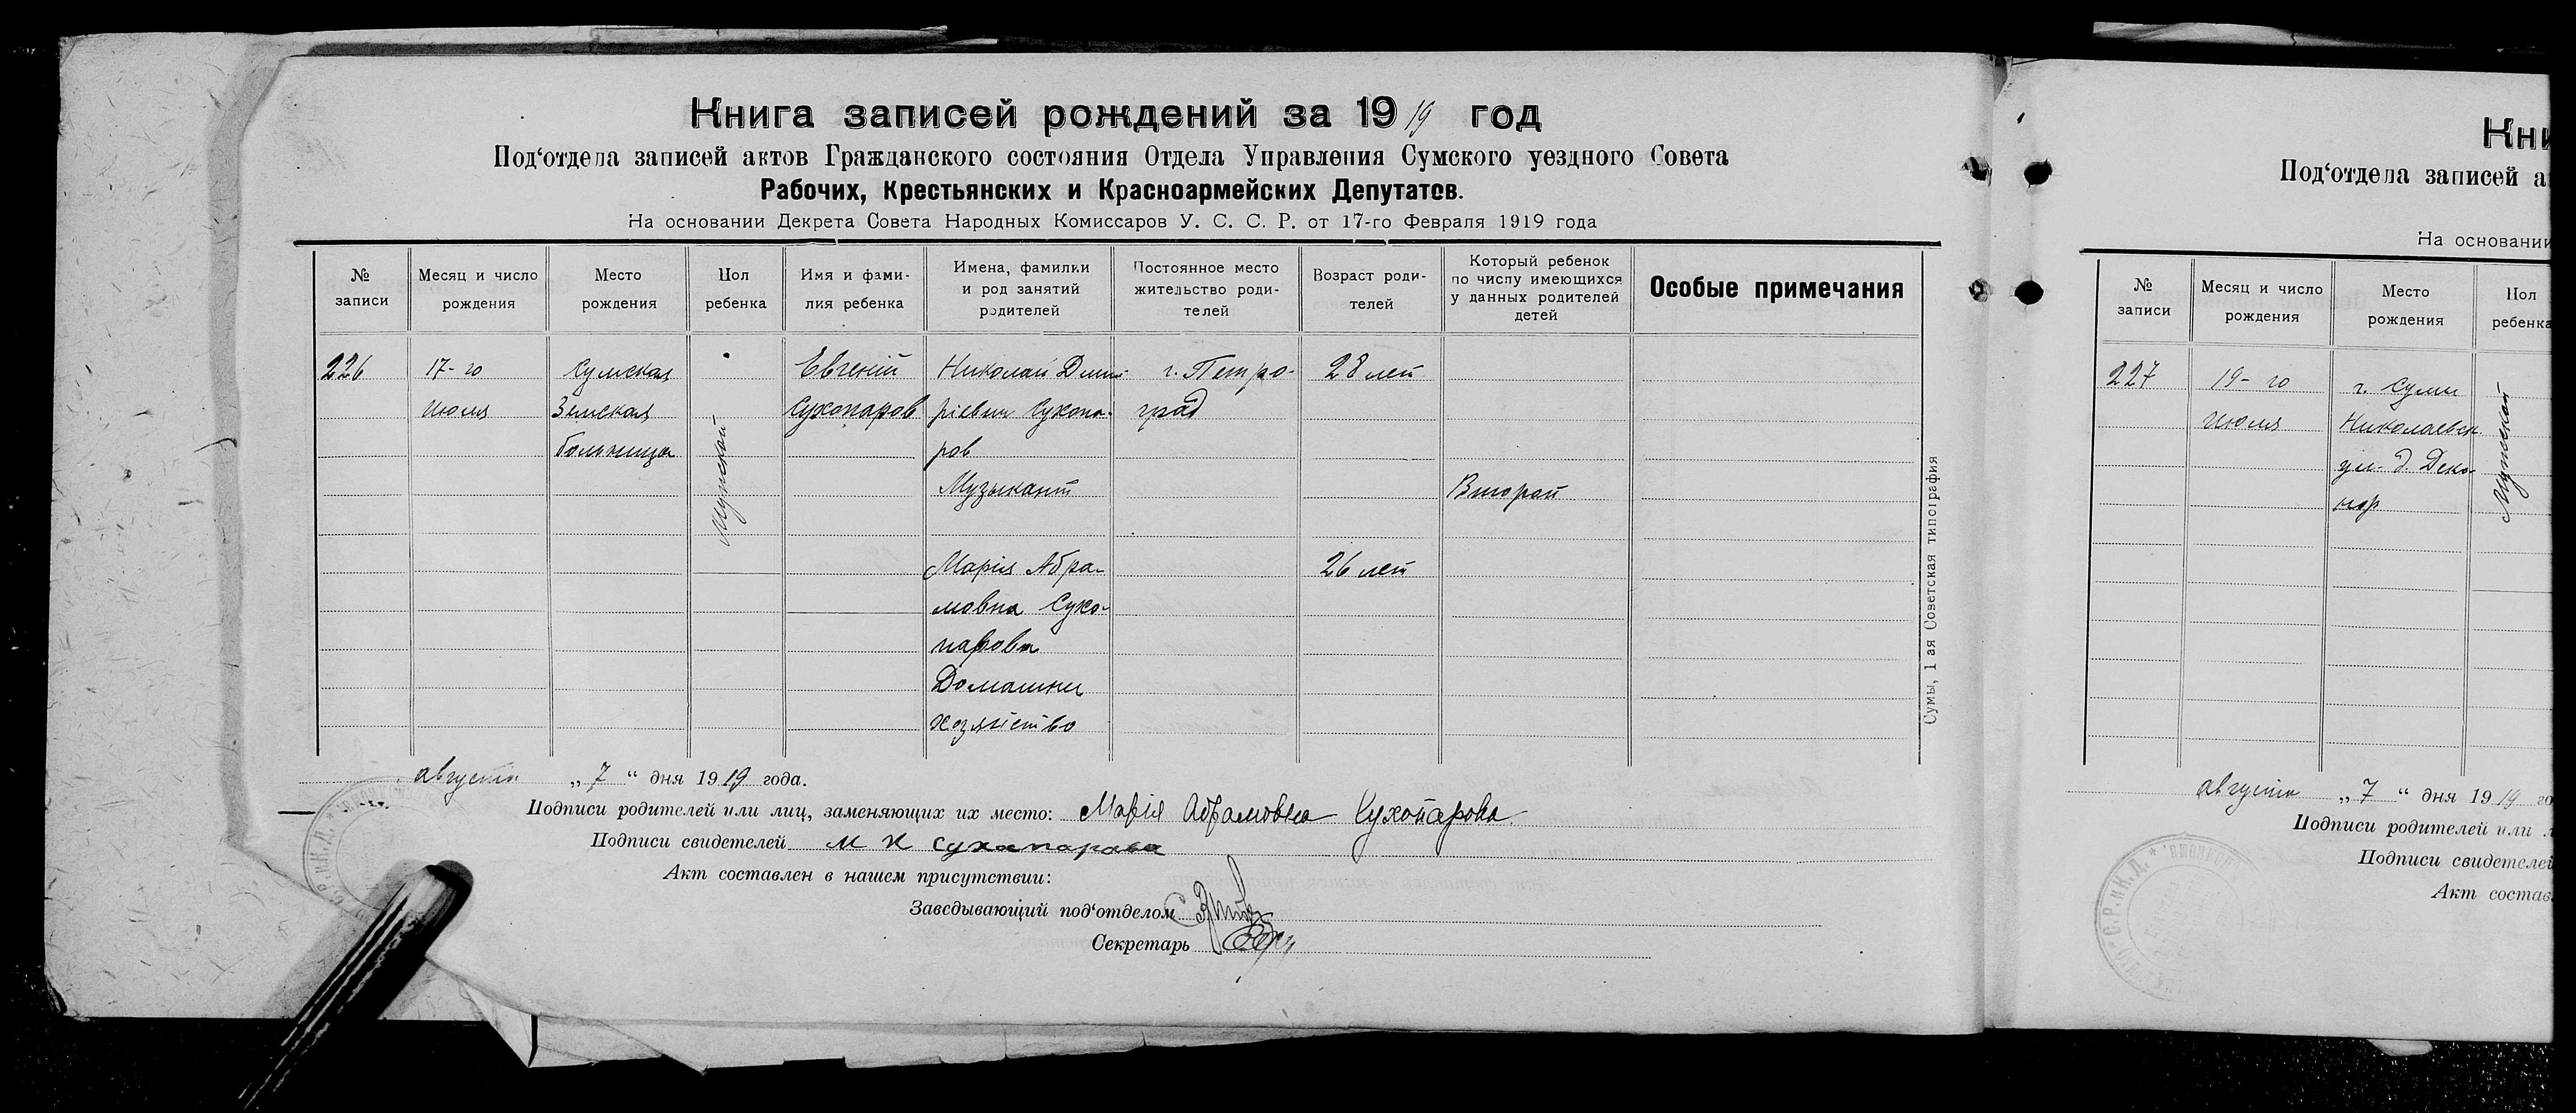 Книга записей рождений за 1919 год
Под‘отдела записей актов Гражданского состояния Отдела Управления Сумского уездного Совета
Рабочих, Крестьянских и Красноармейских Депутатов.
На основании Декрета Совета Народных Комиссаров У. С. С. Р. от 17-го Февраля 1919 года
№ записи
Месяц и число рождения
Место рождения
Пол ребенка
Имя и фами-
лия ребенка
Имена, фамилии
и род занятий
родителей
Постоянное место
жительство роди-
телей
Возраст роди-
телей
Который ребенок
по числу имеющихся
у данных родителей
детей
Особые примечания
226
17-го
июля
Сумская
Земская
больница
Мужской
Евгений
Сухопаров
Николай Дмит-
ріевич Сухопа-
ров
Музыкант
Марія Абра-
мовна Сухо-
парова
Домашнее
хозяйство
г. Петро-
град
28 лет
26 лет
Второй
Сумы, 1 ая Советская типография
августа „7“ дня 1919 года.
Подписи родителей или лиц, заменяющих их место: Марія Абрамовна Сухопарова
Подписи свидетелей М Н Сухапарава
Акт составлен в нашем присутствии:
Заведывающий под‘отделом
Секретарь
Кни
Под‘отдела записей а
На основании
№ записи
Месяц и число рождения
Место рождения
Пол ребенка
227
19-го
июля
г. Сумы
Николаевск.
ул. д.
Мужской
августа „7“ дня 1919 го
Подписи родителей или л
Подписи свидетелей
Акт состав